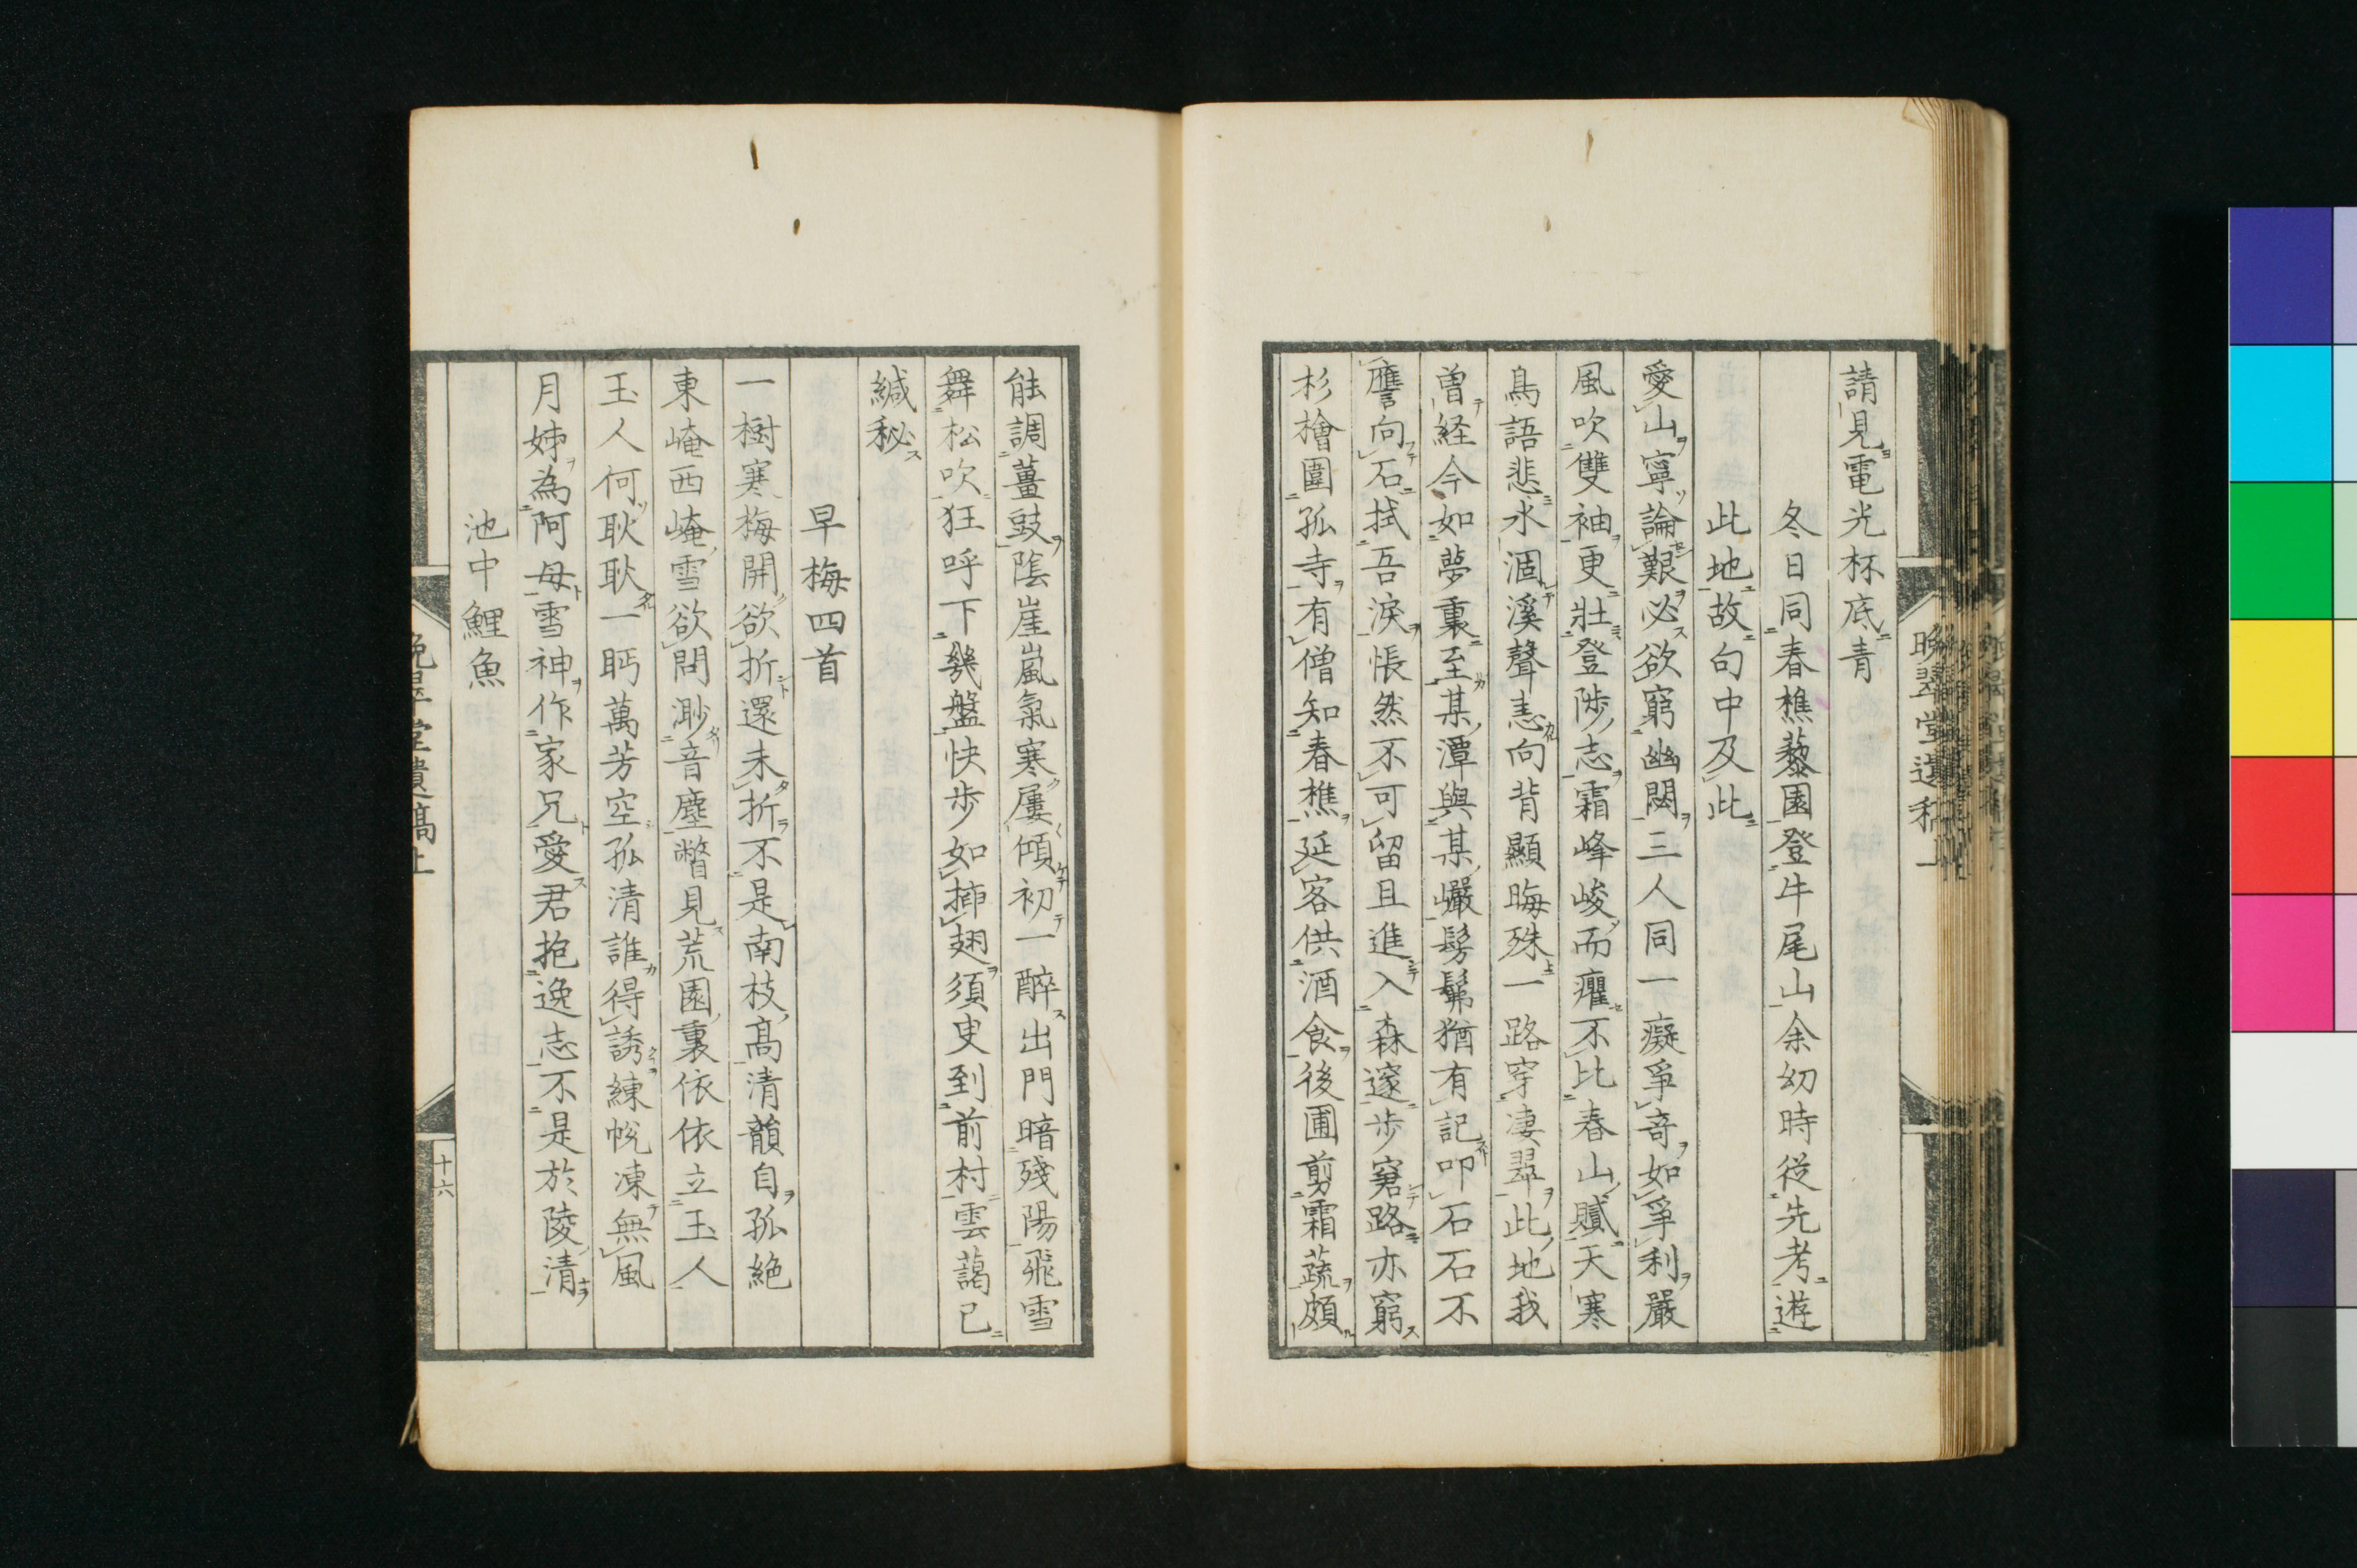 請見電光杯底青
冬日同春樵藜園登牛尾山余幼時從先考遊
此地故句中及此
愛山寧論艱必欲窮幽閟三人同一癡爭奇如爭利嚴
風吹雙袖更壯登陟志霜峰峻而癯不比春山膩天寒
鳥語悲水涸溪聲恚向背顯晦殊一路穿凄翠此地我
曽経今如夢裏至某潭與某巖髣髴猶有記叩石石不
譍向石拭吾淚悵然不可留且進入森邃步窘路亦窮
杉檜圍孤寺有僧知春樵延客供酒食後圃剪霜蔬頗
能調薑豉陰崖嵐氣寒屢傾初一醉出門暗殘陽飛雪
舞松吹狂呼下幾盤快步如揷翅須臾到前村雲藹已
緘秘
早梅四首
一樹寒梅開欲折還未折不是南枝高清韻自孤絶
東崦西崦雪欲問渺音塵瞥見荒園裏依依立玉人
玉人何耿耿一眄萬芳空孤清誰得誘練帨凍無風
月姊為阿母雪神作家兄愛君抱逸志不是於陵清
池中鯉魚
晩翠堂遺稿上
十六